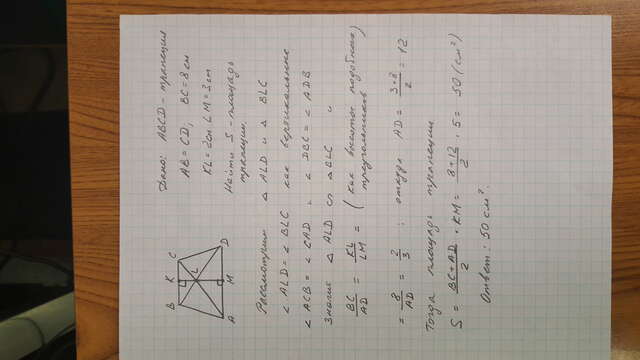 Дано: ABCD - трапеция
AB = CD, BC = 8 см
KL = 2 см LM = 3 см
Найти S - площадь
трапеции.
B K C
L
A M D
Рассмотрим △ ALD и △ BLC
∠ ALD = ∠ BLC как вертикальные
∠ ACB = ∠ CAD и ∠ DBC = ∠ ADB
Значит △ ALD ∽ △ BLC и
BC/AD = KL/LM = (как высоты подобных треугольников)
= 8/AD = 2/3 ; откуда AD = 3*8/2 = 12
Тогда площадь трапеции
S = BC+AD/2 · KM = 8+12/2 · 5 = 50 (см²)
Ответ: 50 см².